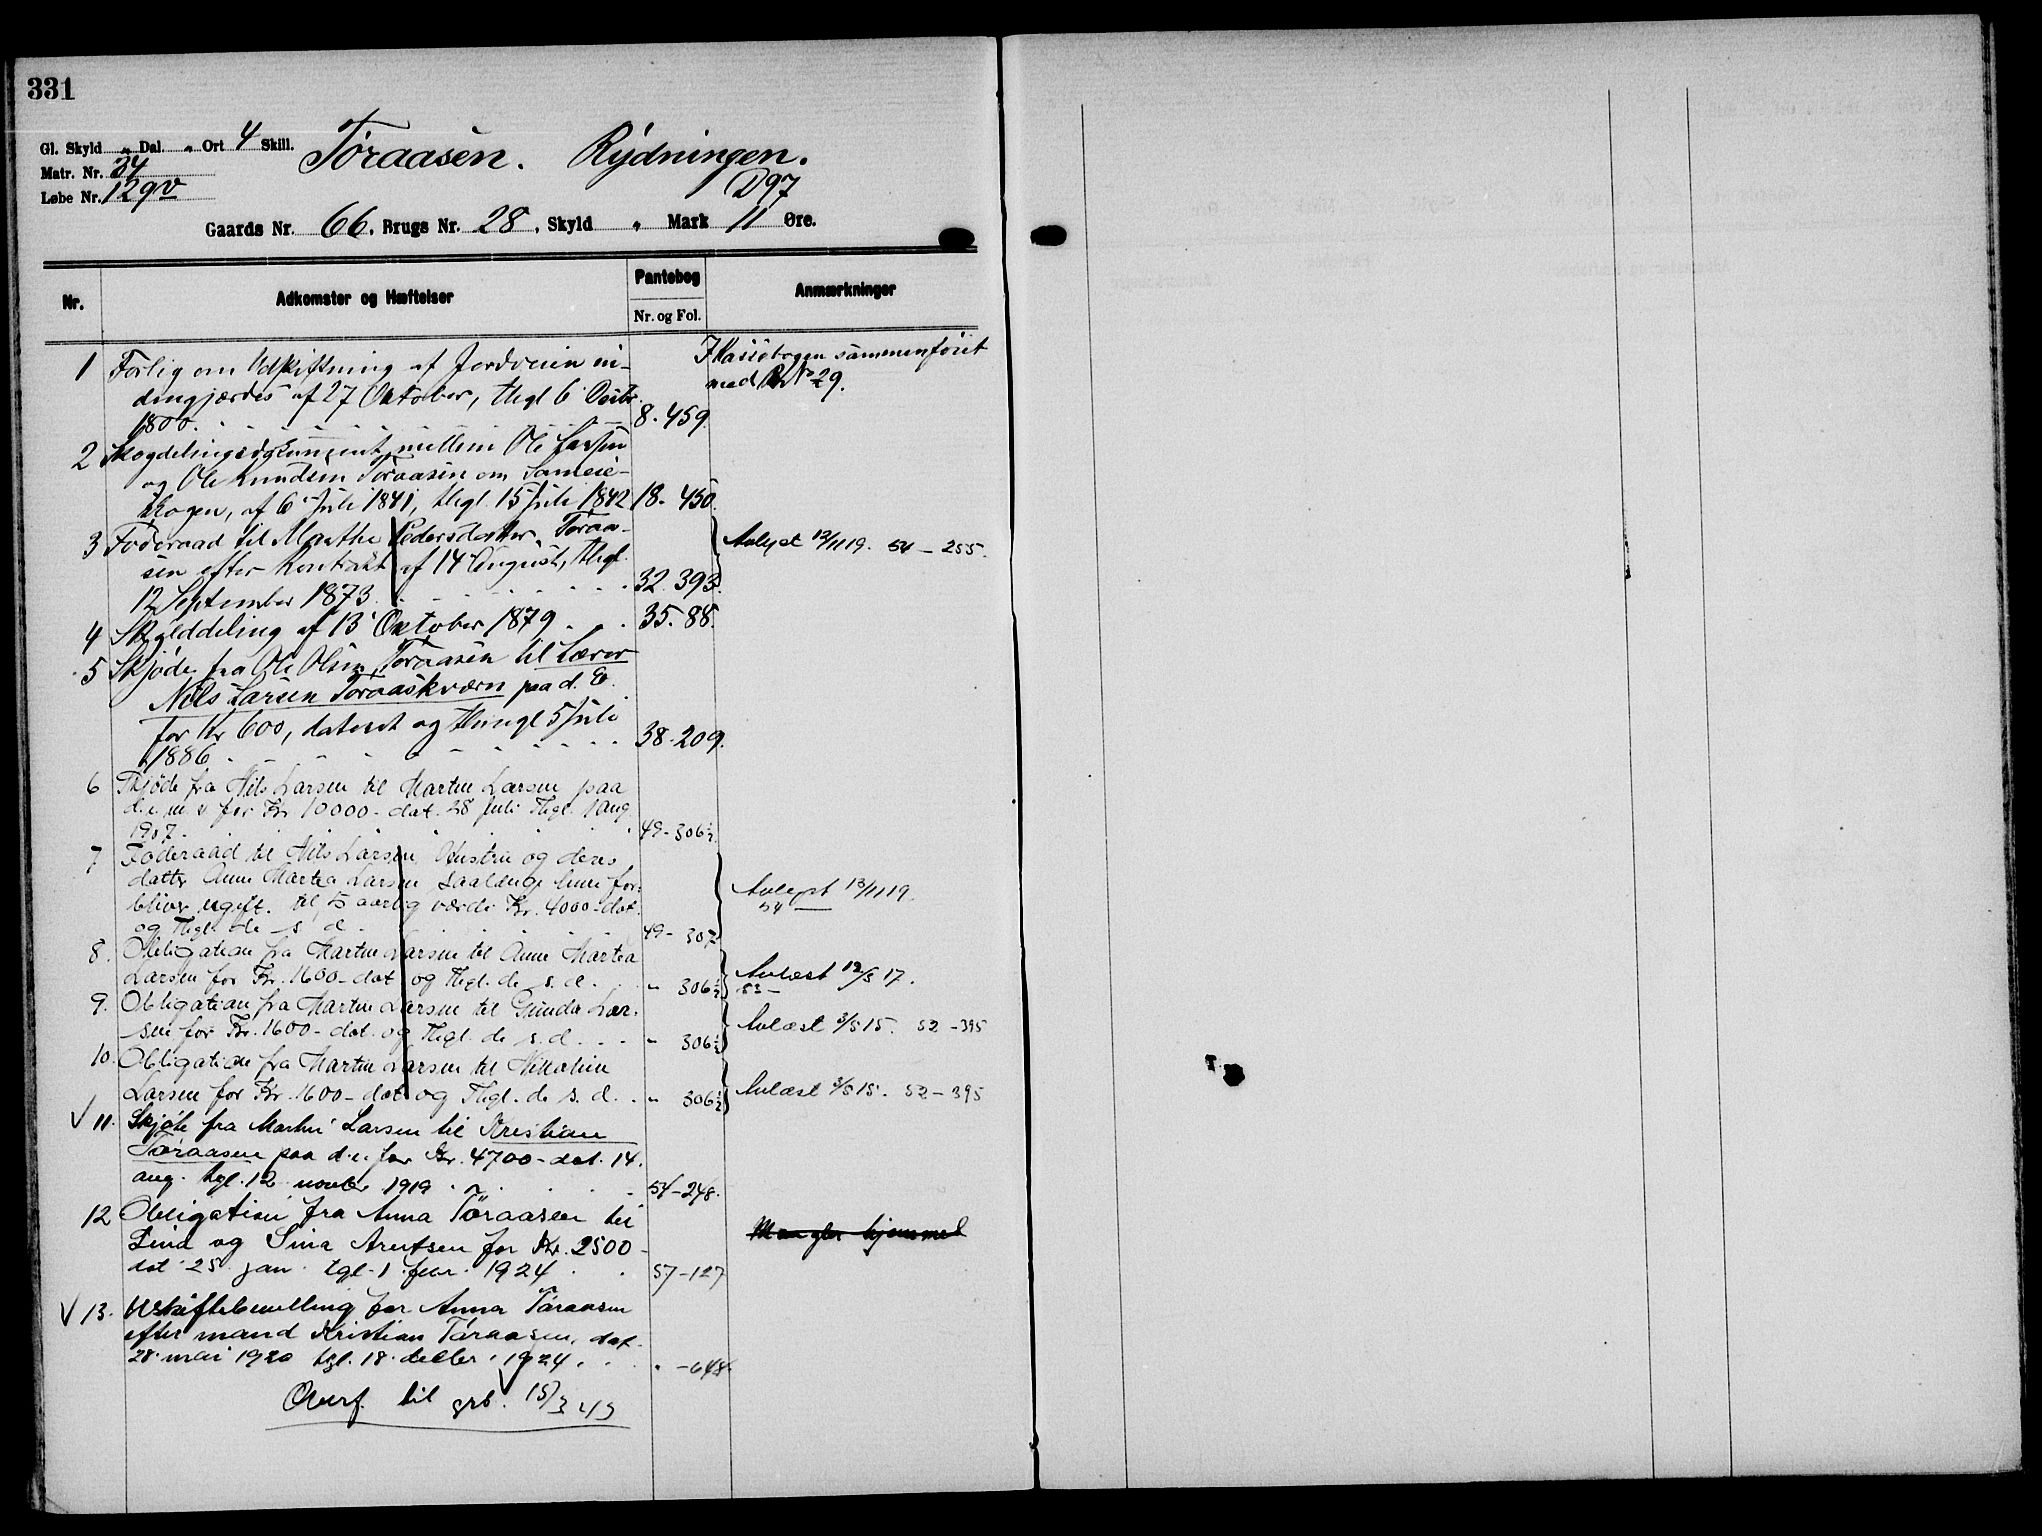 331
Gl. Skyld " Dal. " Ort 4 Skill.
Matr. Nr. 34
Løbe Nr. 129v
Töraasen. Rydningen.
D97
Gaards Nr. 66. Brugs Nr. 28. Skyld " Mark 11 Øre.
Nr. Adkomster og Hæftelser Pantebog Anmærkninger
Nr. og Fol.
1 Forlig om Udskiftning af Jordveien in- I Kassebogen sammenføiet
dengjærdes af 27 Oktober, thgl 6 Decbr. med Br No 29.
1800. 8. 459.
2 Skogdelingsdokument mellem Ole Larsen
og Ole Knudsen Toraasen om Sameie-
skogen, af 6 Juli 1841, thgl. 15 Juli 1842 18. 450.
3 Føderaad til Marthe Pedersdatter Toraa- Avlyst 13/11 19. 54 - 255.
sen efter Kontrakt af 14 August, thgl.
12 September 1873. 32. 393.
4 Skylddeling af 13 Oktober 1879. 35. 88.
5 Skjøde fra Ole Olsen Toraasen til Lærer
Nils Larsen Toraaskværn paa d. E.
for Kr 600, dateret og thingl 5 Juli
1886. 38. 209.
6 Skjøde fra Nils Larsen til Martin Larsen paa
d. e. m. v for Kr. 10000 - dat. 28 Juli Thgl. 1 Aug
1907. 49 - 306½
7 Føderaad til Nils Larsen, Hustru og deres
datter Anne Martea Larsen saalænge hun for- Avlyst 13/11 19.
bliver ugift. til 5 aarlig værdi Kr. 4000 - dat. 54 —
og Thgl. de s d. 49 - 307
8. Obligation fra Martin Larsen til Anne Martea
Larsen for Kr. 1600 - dat og Thgl. de s. d. " 306½ Avlæst 12/3 17.
53 —
9. Obligation fra Martin Larsen til Gunda Lar-
sen for Kr. 1600 - dat. og Thgl. de s. d. " 306½ Avlæst 3/5 15. 52 - 395
10. Obligation fra Martin Larsen til
Larsen for Kr. 1600 - dat og Thgl. de s. d. " 306½ Avlæst 3/5 15. 52 - 395
V 11. Skjøte fra Martin Larsen til Kristian
Töraasen paa d. e. for Kr. 4700 - dat. 14.
aug. tgl. 12 novbr 1919. 54 - 248.
12 Obligation fra Anna Töraasen til
Lina og Sina Arntsen for Kr. 2500 - Mangler hjemmel
dat 25 jan. tgl. 1 febr. 1924 57 - 127
V 13. Uskiftebevilling for Anna Töraasen
efter mand Kristian Töraasen, dat.
28. mai 1920 tgl. 18. decbr. 1924. " - 648.
Overf. til grb. 15/3 43